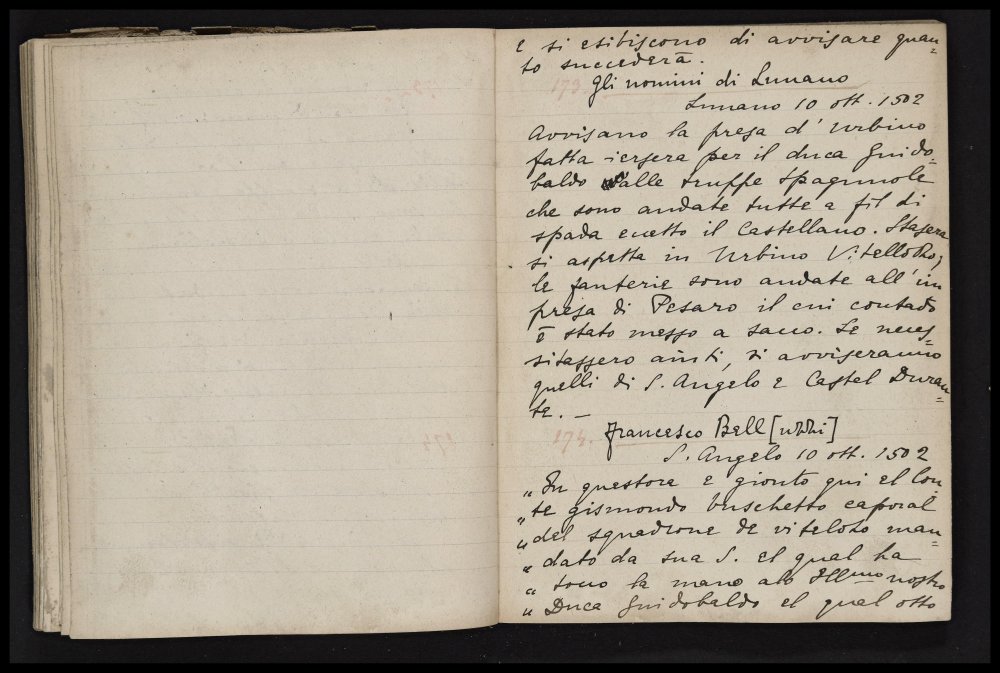 e si esibiscono di avvisare quan=
to succederà.
173. Gli uomini di Lunano
Lunano 10 ott. 1502
Avvisano la presa d' Urbino
fatta iersera per il duca Guido=
baldo dalle truppe spagnuole
che sono andate tutte a fil di
spada eccetto il Castellano. Stasera
si aspetta in Urbino Vitellozzo,
le fanterie sono andate all'im
presa di Pesaro il cui contado
è stato messo a sacco. Se neces=
sitassero aiuti, si avviseranno
quelli di S. Angelo e Castel Duran=
te. —
174. Francesco Bell[uzzi]
S. Angelo 10 ott. 1502
" In questora e gionto qui el Con=
" te gismondo buschetto caporal
" del squadrone de viteloso man=
" dato da sua S. el qual ha
" toco la mano alo Illmo nostro
" Duca Guidobaldo el qual otto